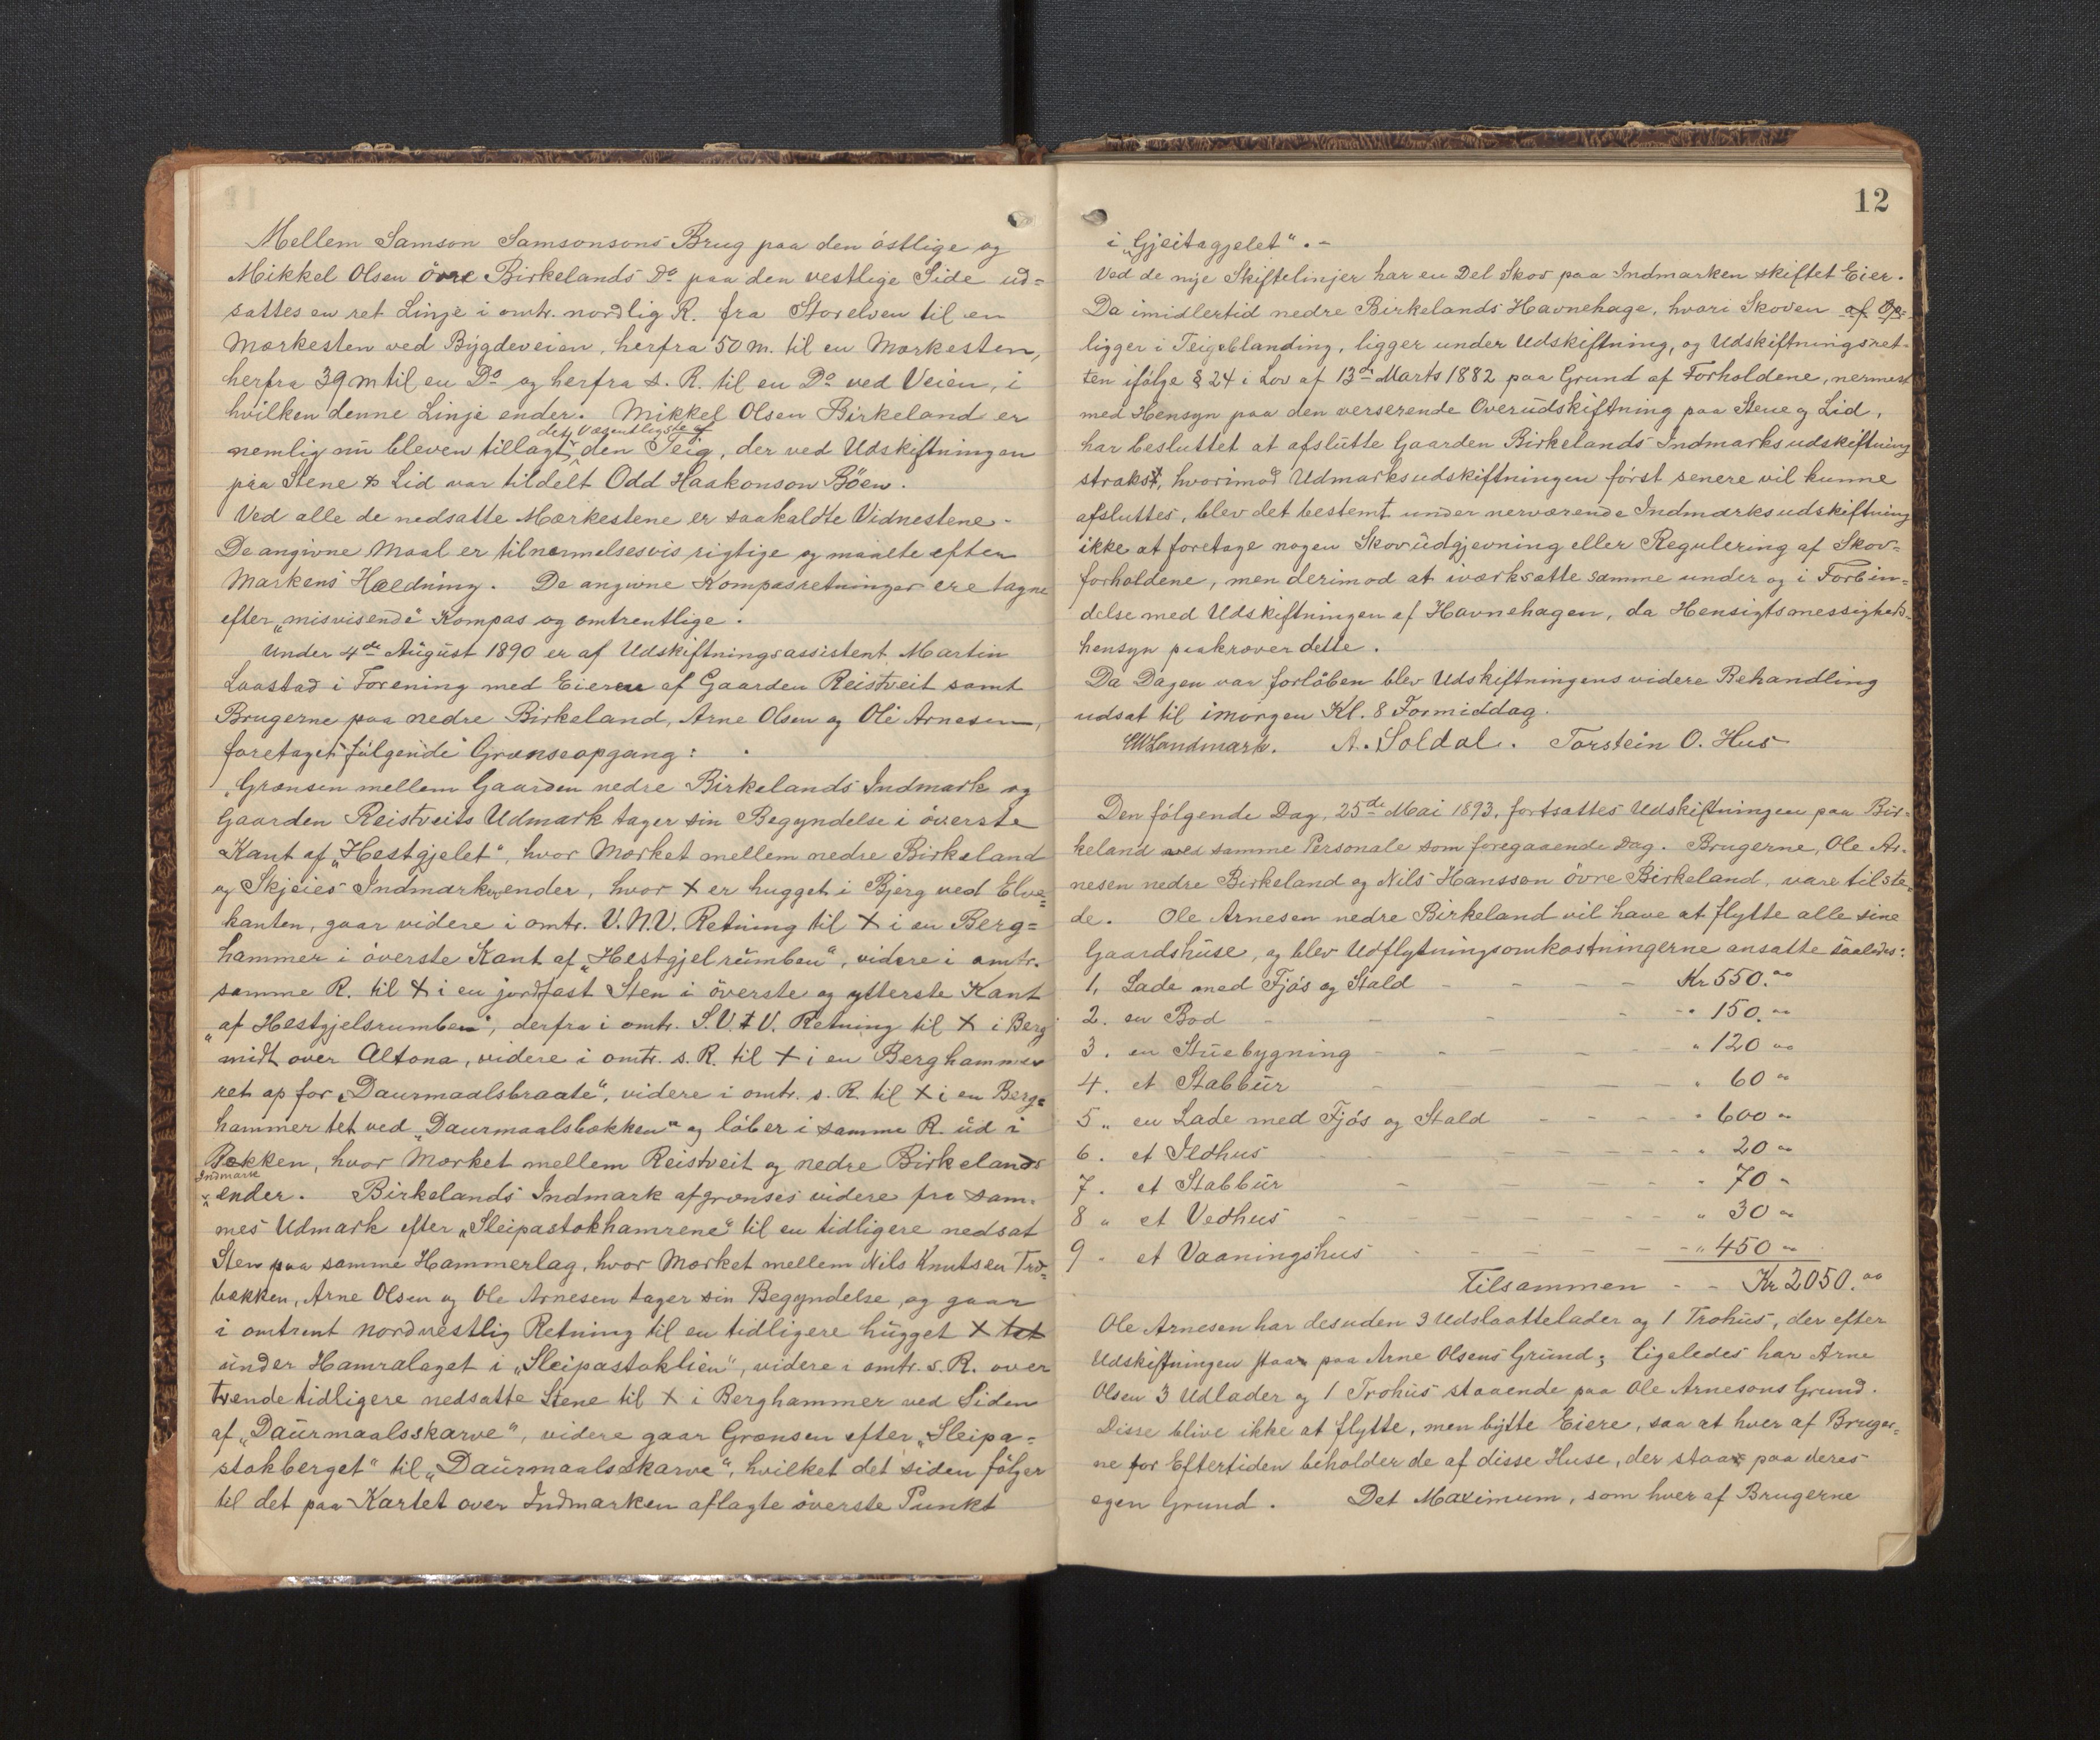 Mellem Samson Samsonsons Brug paa den östlige og
Mikkel Olsen övre Birkelands Do paa den vestlige Side ud=
sattes en ret Linje i omtr. nordlig R. fra Storelven til en
Mærkesten ved Bygdeveien, herfra 50 m. til en Mærkesten,
herfra 39 m til en Do og herfra s. R. til en Do ved Veien, i
hvilken denne Linje ender. Mikkel Olsen Birkeland er
det Væsentligste af
nemlig nu bleven tillagt den Teig, der ved Udskiftningen
paa Stene & Lid var tildelt Odd Haakonson Böen.
Ved alle de nedsatte Mærkestene er saakaldte Vidnestene.
De angivne Maal er tilnærmelsesvis rigtige og maalte efter
Markens Hældning. De angivne Kompasretninger ere tagne
efter „misvisende" Kompas og omtrentlige.
Under 4de August 1890 er af Udskiftningsassistent Martin
Laastad i Forening med Eieren af Gaarden Reistveit samt
Brugerne paa nedre Birkeland, Arne Olsen og Ole Arnesen,
foretaget følgende Grænseopgang:
„Grænsen mellem Gaarden nedre Birkelands Indmark og
Gaarden Reistveits Udmark tager sin Begyndelse i överste
Kant af „Hestgjelet", hvor Mærket mellem nedre Birkeland
og Skjeies Indmarker ender, hvor X er hugget i Bjerg ved Elve=
kanten, gaar videre i omtr. V.N.V. Retning til X i en Berg=
hammer i överste Kant af „Hestgjelrumben", videre i omtr.
samme R. til X i en jordfast Sten i överste og ytterste Kant
„af Hestgjelsrumben", derfra i omtr. S.V.t.V. Retning til X i Berg
midt over Altona, videre i omtr. s. R. til X i en Berghammer
ret op for „Daurmaalsbraate", videre i omtr. s. R. til X i en Berg=
hammer tet ved „Daurmaalsbækken" og löber i samme R. ud i
Bækken, hvor Mærket mellem Reistveit og nedre Birkelands
Indmark
ender. Birkelands Indmark afgrænses videre fra sam=
mes Udmark efter „Sleipastokhamrene" til en tidligere nedsat
Sten paa samme Hammerlag, hvor Mærket mellem Nils Knutsen Træ=
bækken, Arne Olsen og Ole Arnesen tager sin Begyndelse, og gaar
i omtrent nordvestlig Retning til en tidligere hugget X tet
under Hamralaget i „Sleipastoklien", videre i omtr. s. R. over
tvende tidligere nedsatte Stene til X i Berghammer ved Siden
af „Daurmaalsskarve", videre gaar Grænsen efter „Sleipa=
stokberget" til „Daurmaalsskarve", hvilket det siden følger
til det paa Kartet over Indmarken aflagte överste Punkt
12
i „Gjeitagjelet". -
Ved de nye Skiftelinjer har en Del Skov paa Indmarken skiftet Eier.
Da imidlertid nedre Birkelands Havnehage, hvori Skoven af Op=
ligger i Teigeblanding, ligger under Udskiftning, og Udskiftningsret=
ten ifølge § 24 i Lov af 13de Marts 1882 paa Grund af Forholdene, nærmest
med Hensyn paa den verserende Overudskiftning paa Stene og Lid,
har besluttet at afslutte Gaarden Birkelands Indmarksudskiftning
straks, hvorimod Udmarksudskiftningen først senere vil kunne
afsluttes, blev det bestemt under nerværende Indmarksudskiftning
ikke at foretage nogen Skovudgjevning eller Regulering af Skov=
forholdene, men derimod at iværksætte samme under og i Forbin=
delse med Udskiftningen af Havnehagen, da Hensigtsmessigheds=
hensyn paakræver dette.
Da Dagen var forlöben blev Udskiftningens videre Behandling
udsat til imorgen Kl. 8 Formiddag.
Landmark. A. Soldal. Torstein O. Hus
Den følgende Dag, 25de Mai 1893, fortsattes Udskiftningen paa Bir=
keland med samme Personale som foregaaende Dag. Brugerne, Ole Ar=
nesen nedre Birkeland og Nils Hansson övre Birkeland, vare tilste=
de. Ole Arnesen nedre Birkeland vil have at flytte alle sine
Gaardshuse, og blev Udflytningsomkostningerne ansatte saaledes:
1. Lade med Fjös og Stald - - - - Kr 550.00
2. en Bod - - - - - " 150.00
3. en Stuebygning - - - - " 120 00
4. et Stabbur - - - - " 60 "
5. en Lade med Fjös og Stald - - - " 600 "
6. et Ildhus - - - - - " 20 "
7. et Stabbur - - - - " 70 "
8 " et Vedhus - - - - - " 30 "
9 - et Vaaningshus - - - - " 450 "
Tilsammen - - Kr 2050.00
Ole Arnesen har desuden 3 Udslaattelader og 1 Trohus, der efter
Udskiftningen staar paa Arne Olsens Grund; ligeledes har Arne
Olsen 3 Udlader og 1 Trohus staaende paa Ole Arnesons Grund.
Disse blive ikke at flytte, men bytte Eiere, saa at hver af Bruger=
ne for Eftertiden beholder de af disse Huse, der staar paa deres
egen Grund. Det Maximum, som hver af Brugerne